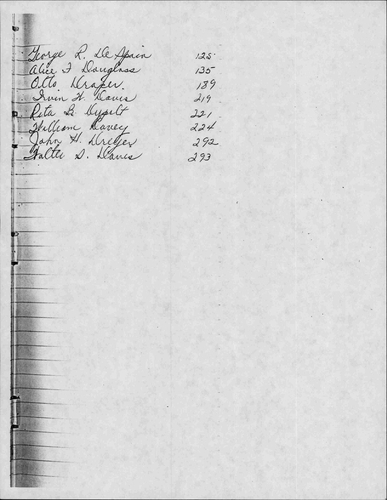 George R. De Spain 125
Alice F Douglass 135
Otto Draper. 189
Irvin H. Davis 219
Rita B. 221
William Davey 224
John H. Dreyer 292
Walter S. Davis 293